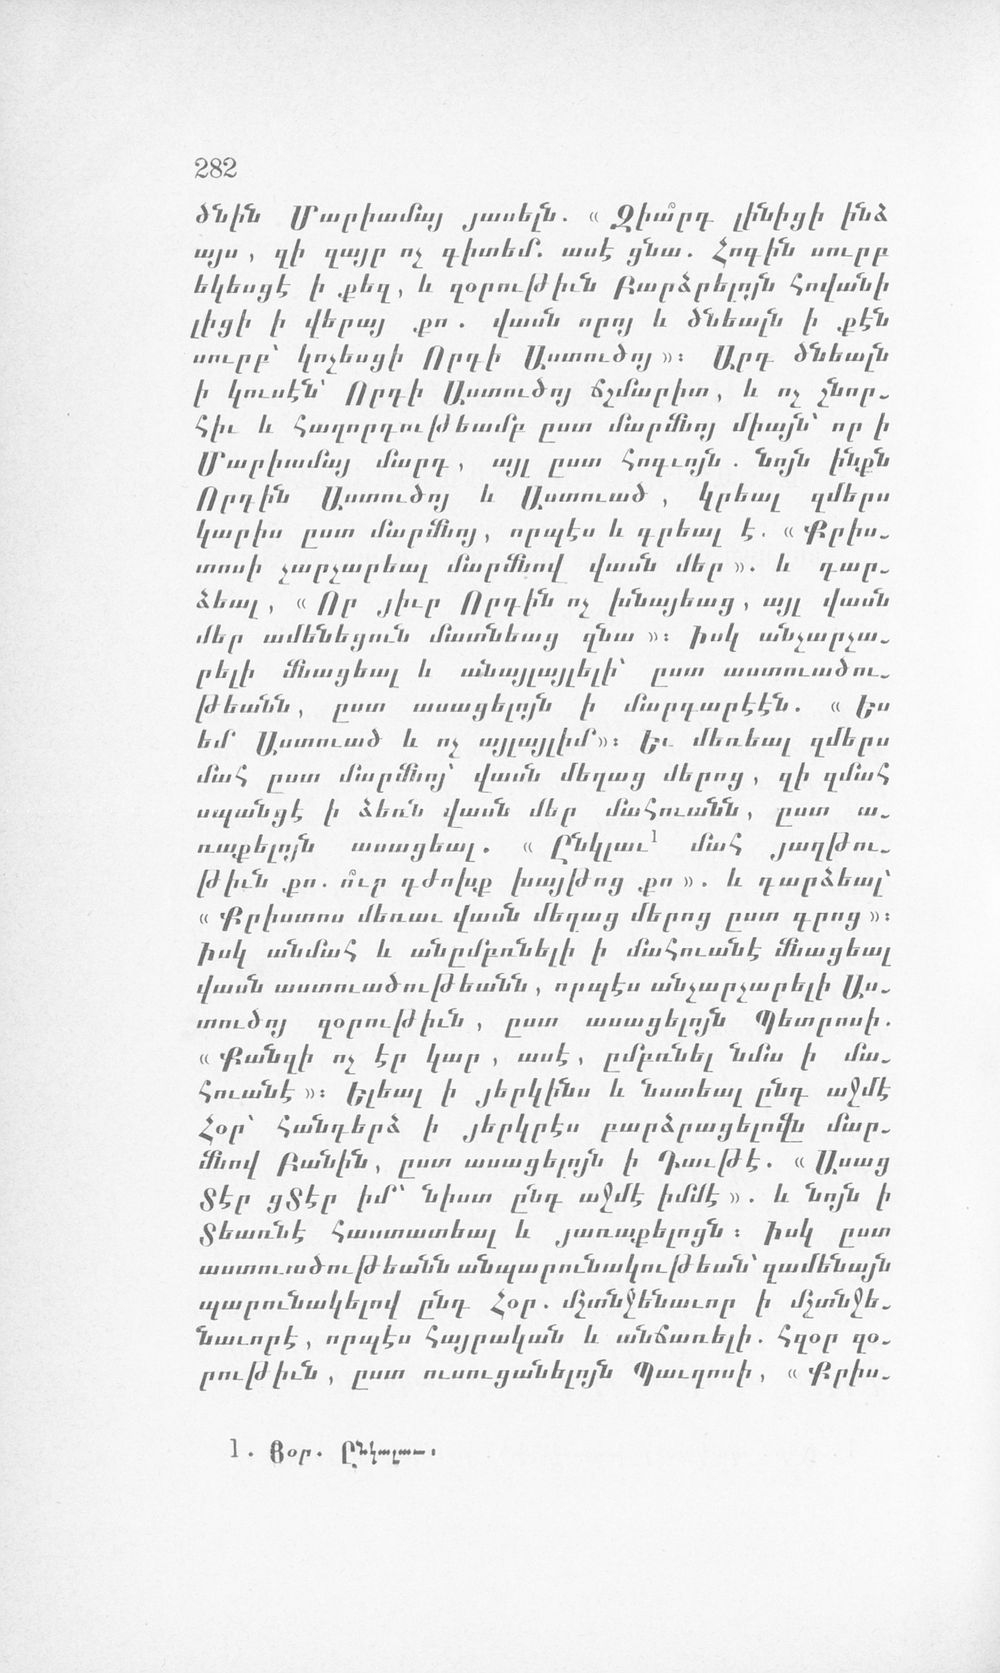 282
ծնին Մարիամայ յասելն. « Զիա՞րդ լինիցի ինձ
այս, զի զայր ոչ գիտեմ. ասէ ցնա. Հոգին սուրբ
եկեսցէ ի քեզ, և զօրութիւն Բարձրելոյն հովանի
լիցի ի վերայ քո. վասն որոյ և ծնեալն ի քէն
սուրբ՝ կոչեսցի Որդի Աստուծոյ »։ Արդ ծնեալն
ի կուսէն՝ Որդի Աստուծոյ ճշմարիտ, և ոչ շնոր-
հիւ և հաղորդութեամբ ըստ մարմնոյ միայն՝ որ ի
Մարիամայ մարդ, այլ ըստ հոգւոյն. նոյն ինքն
Որդին Աստուծոյ և Աստուած, կրեալ զմերս
կարիս ըստ մարմնոյ, որպէս և գրեալ է. « Քրիս-
տոսի չարչարեալ մարմնով վասն մեր ». և դար-
ձեալ, « Որ յիւր Որդին ոչ խնայեաց, այլ վասն
մեր ամենեցուն մատնեաց զնա »։ Իսկ անչարչա-
րելի մնացեալ և անայլայլելի՝ ըստ աստուածու-
թեանն, ըստ ասացելոյն ի մարգարէէն. « Ես
եմ Աստուած և ոչ այլայլիմ »։ Եւ մեռեալ զմերս
մահ ըստ մարմնոյ՝ վասն մեղաց մերոց, զի զմահ
սպանցէ ի ձեռն վասն մեր մահուանն, ըստ ա-
ռաքելոյն ասացեալ. « Ընկլաւ1 մահ յաղթու-
թիւն քո. ո՞ւր դժոխք խայթոց քո ». և դարձեալ՝
« Քրիստոս մեռաւ վասն մեղաց մերոց ըստ գրոց »։
Իսկ անմահ և անըմբռնելի ի մահուանէ մնացեալ
վասն աստուածութեանն, որպէս անչարչարելի Աս-
տուծոյ զօրութիւն, ըստ ասացելոյն Պետրոսի.
« Քանզի ոչ էր կար, ասէ, ըմբռնել նմա ի մա-
հուանէ »։ Ելեալ ի յերկինս և նստեալ ընդ աջմէ
Հօր՝ հանդերձ ի յերկրէս բարձրացելովն մար-
մնով Բանին, ըստ ասացելոյն ի Դաւթէ. « Ասաց
Տէր ցՏէր իմ՝ նիստ ընդ աջմէ իմմէ ». և նոյն ի
Տեառնէ հաստատեալ և յառաքելոցն։ Իսկ ըստ
աստուածութեանն անպարունակութեան՝ զամենայն
պարունակելով ընդ Հօր. մշտնջենաւոր ի մշտնջե-
նաւորէ, որպէս հայրական և անճառելի. հզօր զօ-
րութիւն, ըստ ուսուցանելոյն Պաւղոսի, « Քրիս-
1. Յօր. Ընկալաւ։